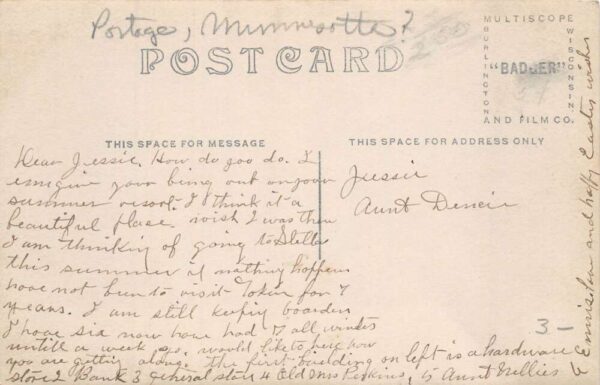 Portage, Minnesotta?
200
POST CARD
MULTISCOPE
BURLINGTON
WISCONSIN.
"BADGER"
AND FILM CO.
THIS SPACE FOR MESSAGE
THIS SPACE FOR ADDRESS ONLY
Dear Jessie. How do you do. I
emigine your being out on your
summer resort. I think it a
beautiful place. wish I was there
I am thinking of going to Stella
this summer if nothing happens
have not bun to visit for 7
years. I am still keepig boarders
I have six now have had 7 all winter
untill a week ago. would like to here how
you are gettig along. The first building on left is a hardware
store 2 Bank 3 general store 4 Old Mrs Perkins, 5 Aunt Nellies
Jessie
Aunt
3-
6 and happy Easter wishes